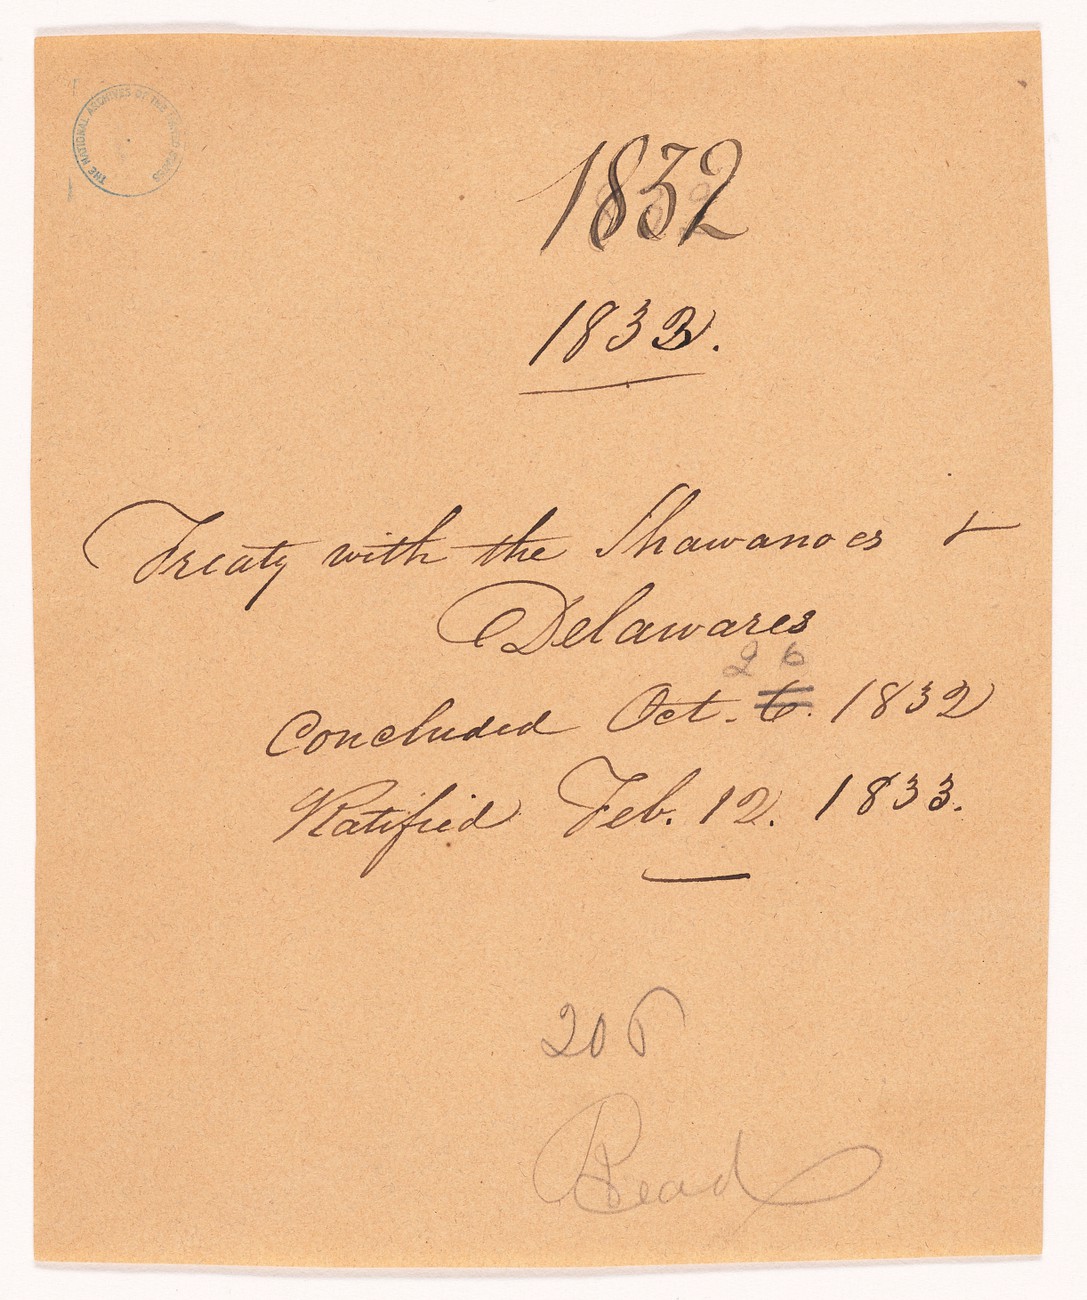 THE NATIONAL ARCHIVES OF THE UNITED STATES
1832
1832.
Treaty with the Shawanoes &
Delawares
26
Concluded Oct. 6. 1832
Ratified Feb. 12. 1833.
20
Read